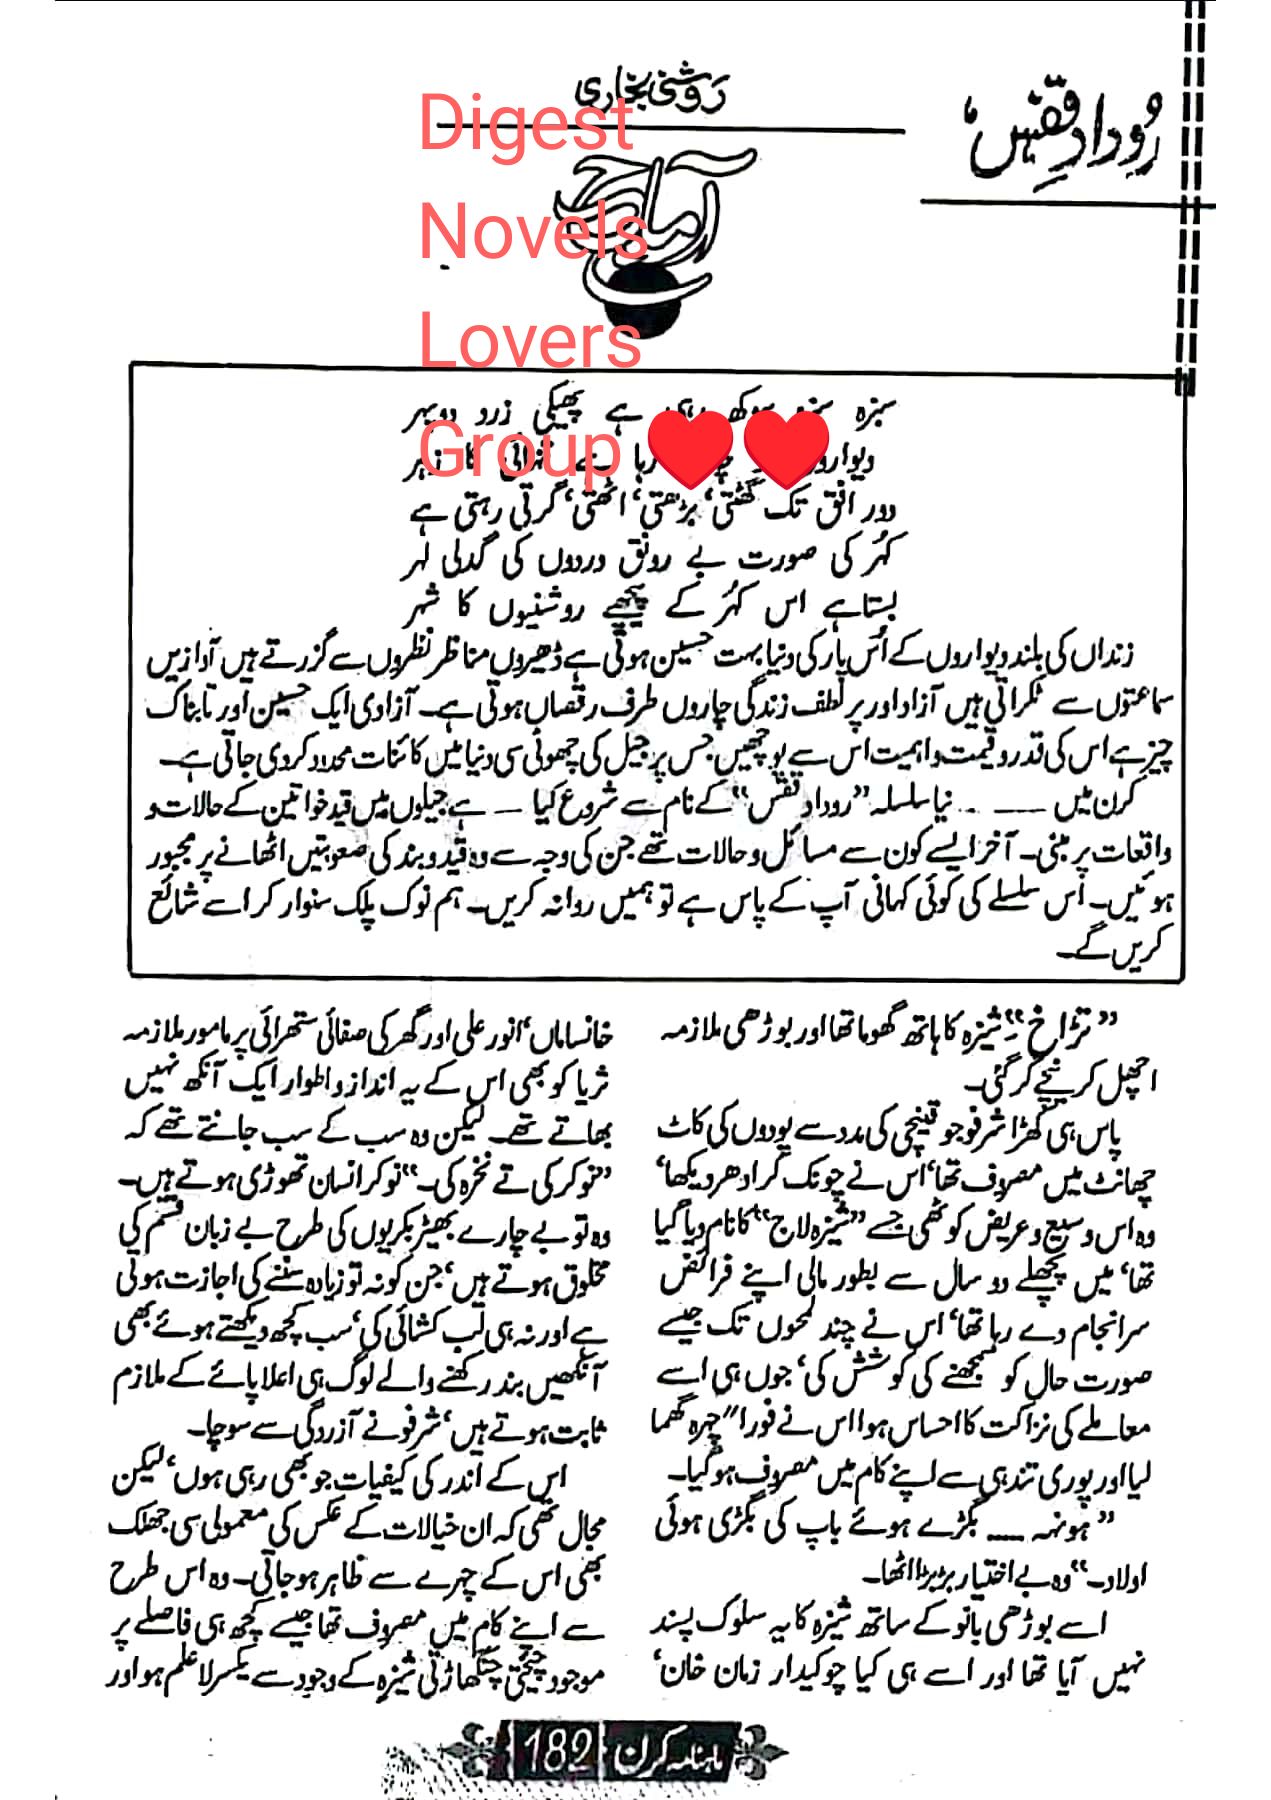 رُودادِ قفس،
رَوشنی بخاری
آماج
Digest
Novels
Lovers
Group
سبزہ سبزہ سوکھ رہی ہے پھیکی زرد دوپہر
دیواروں کو چاٹ رہا ہے تنہائی کا زہر
دور افق تک گھٹتی، بڑھتی، اٹھتی، گرتی رہتی ہے
کہُر کی صورت بے رونق دردوں کی گدلی لہر
بستا ہے اس کہُر کے پیچھے روشنیوں کا شہر
زنداں کی بلند دیواروں کے اُس پار کی دنیا بہت حسین ہوتی ہے ڈھیروں مناظر نظروں سے گزرتے ہیں آوازیں
سماعتوں سے ٹکراتی ہیں آزاد اور پر لطف زندگی چاروں طرف رقصاں ہوتی ہے۔ آزادی ایک حسین اور تابناک
چیز ہے اس کی قدر و قیمت و اہمیت اس سے پوچھیں جس پر جیل کی چھوٹی سی دنیا میں کائنات محدود کر دی جاتی ہے۔
کرن میں ــــ ۔۔ نیا سلسلہ ”رودادِ قفس“ کے نام سے شروع کیا ــ ہے جیلوں میں قید خواتین کے حالات و
واقعات پر مبنی۔ آخر ایسے کون سے مسائل و حالات تھے جن کی وجہ سے وہ قید و بند کی صعوبتیں اٹھانے پر مجبور
ہوئیں۔ اس سلسلے کی کوئی کہانی آپ کے پاس ہے تو ہمیں روانہ کریں۔ ہم نوک پلک سنوار کر اسے شائع
کریں گے۔
”تڑاخ۔“ شیزہ کا ہاتھ گھوما تھا اور بوڑھی ملازمہ
اچھل کر نیچے گر گئی۔
پاس ہی کھڑا شرفو جو قینچی کی مدد سے پودوں کی کاٹ
چھانٹ میں مصروف تھا، اس نے چونک کر ادھر دیکھا،
وہ اس وسیع و عریض کوٹھی جسے ”شیزہ لاج“ کا نام دیا گیا
تھا، میں پچھلے دو سال سے بطور مالی اپنے فرائض
سرانجام دے رہا تھا، اس نے چند لمحوں تک جیسے
صورت حال کو سمجھنے کی کوشش کی، جوں ہی اسے
معاملے کی نزاکت کا احساس ہوا اس نے فوراً چہرہ گھما
لیا اور پوری تندہی سے اپنے کام میں مصروف ہو گیا۔
”ہونہہ ــــ بگڑے ہوئے باپ کی بگڑی ہوئی
اولاد۔“ وہ بے اختیار بڑبڑا اٹھا۔
اسے بوڑھی بانو کے ساتھ شیزہ کا یہ سلوک پسند
نہیں آیا تھا اور اسے ہی کیا چوکیدار زمان خان،
خانساماں، انور علی اور گھر کی صفائی ستھرائی پر مامور ملازمہ
ثریا کو بھی اس کے یہ انداز و اطوار ایک آنکھ نہیں
بھاتے تھے۔ لیکن وہ سب کے سب جانتے تھے کہ
”نوکر کی تے نخرہ کی۔“ نوکر انسان تھوڑی ہوتے ہیں۔
وہ تو بے چارے بھیڑ بکریوں کی طرح بے زبان قسم کی
مخلوق ہوتے ہیں، جن کو نہ تو زیادہ سننے کی اجازت ہوتی
ہے اور نہ ہی لب کشائی کی، سب کچھ دیکھتے ہوئے بھی
آنکھیں بند رکھنے والے لوگ ہی اعلا پائے کے ملازم
ثابت ہوتے ہیں، شرفو نے آزردگی سے سوچا۔
اس کے اندر کی کیفیات جو بھی رہی ہوں، لیکن
مجال تھی کہ ان خیالات کے عکس کی معمولی سی جھلک
بھی اس کے چہرے سے ظاہر ہو جاتی۔ وہ اس طرح
سے اپنے کام میں مصروف تھا جیسے کچھ ہی فاصلے پر
موجود چیختی چنگھاڑتی شیزہ کے وجود سے یکسر لاعلم ہو اور
ماہنامہ کرن 182